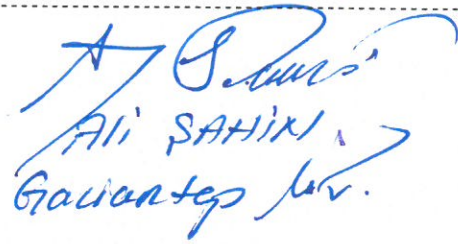 Ali ŞAHİN
Gaziantep Mv.